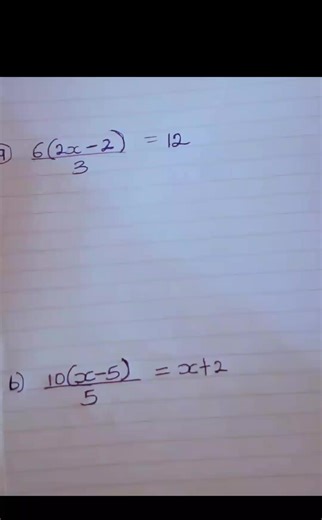 a) 6(2x-2)/3 = 12
b) 10(x-5)/5 = x+2